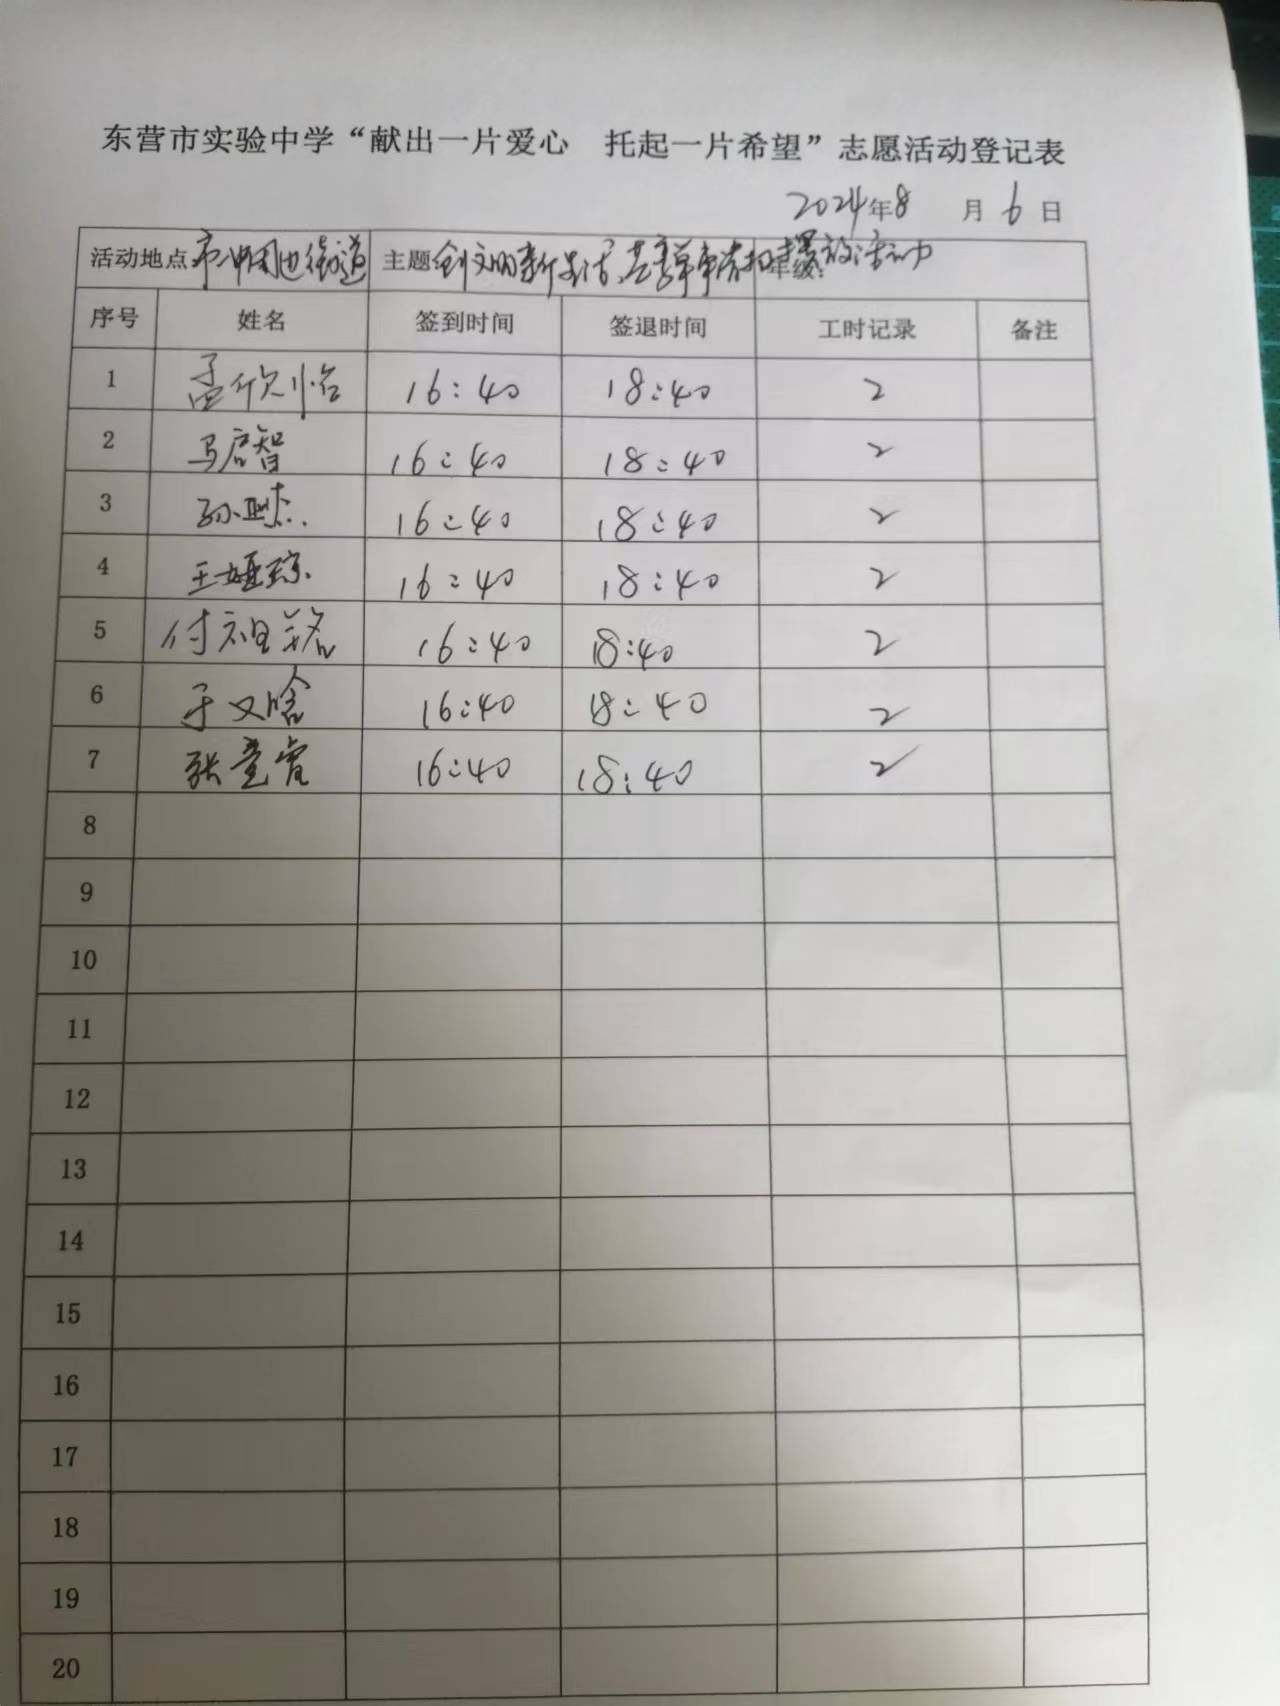 东营市实验中学“献出一片爱心 托起一片希望”志愿活动登记表
2024年8月6日
活动地点 街道 主题: 创文明新生活, 摆放活动 年级:
序号 姓名 签到时间 签退时间 工时记录 备注
1 孟欣怡 16:40 18:40 2
2 马启智 16:40 18:40 2
3 孙 16:40 18:40 2
4 王娅琼 16:40 18:40 2
5 付祖铭 16:40 18:40 2
6 于文晗 16:40 18:40 2
7 张童睿 16:40 18:40 2
8
9
10
11
12
13
14
15
16
17
18
19
20